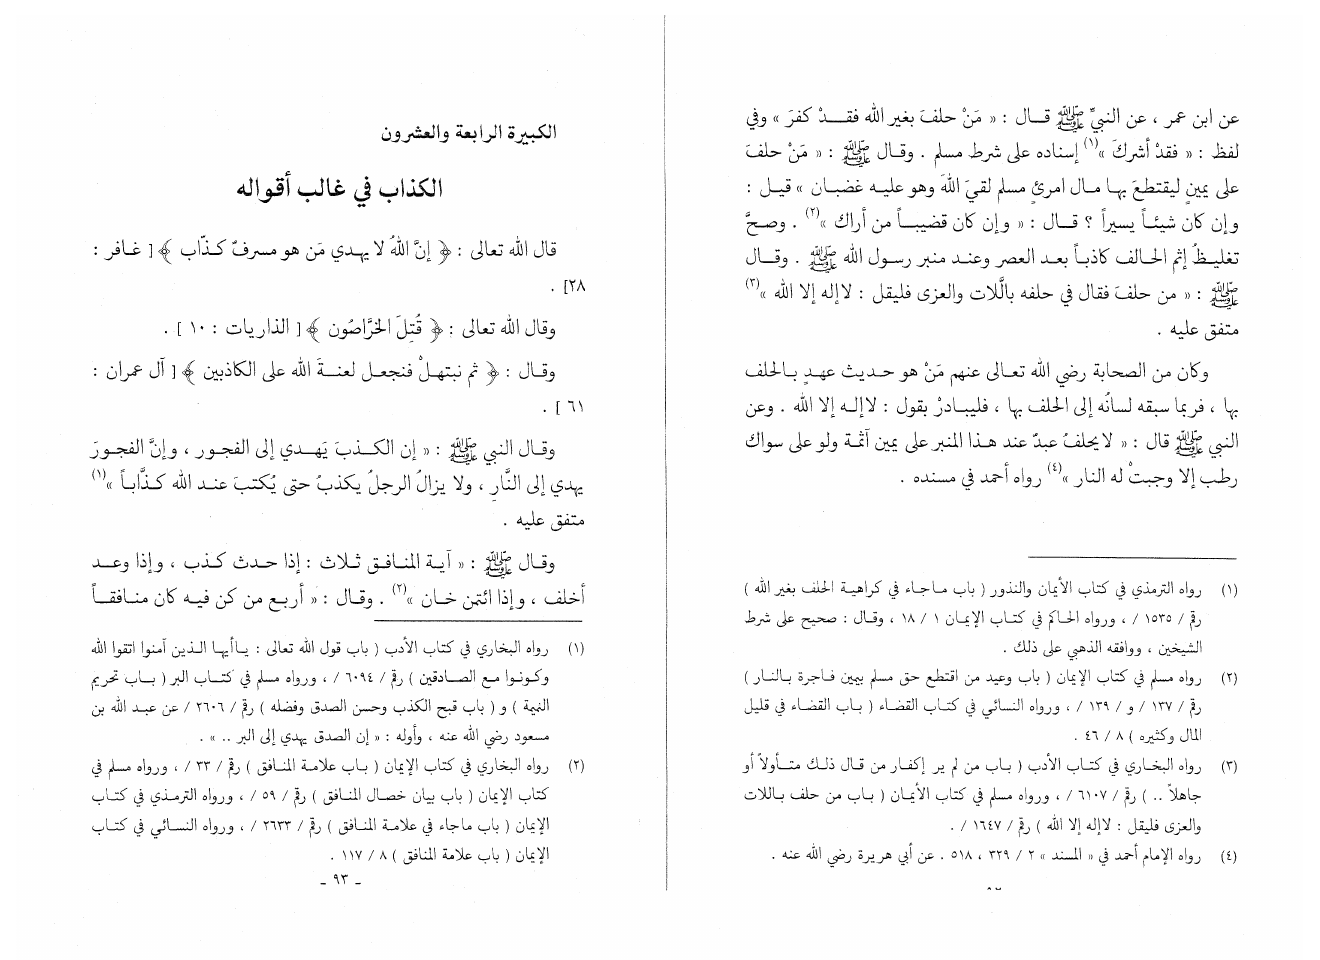 عن ابن عمر ، عن النبيِّ ﷺ قال : « مَنْ حلفَ بغير الله فقدْ كفرَ » وفي
لفظ : « فقدْ أشركَ »(١) إسناده على شرط مسلم . وقال ﷺ : « مَنْ حلفَ
على يمينٍ ليقتطعَ بها مال امرئٍ مسلم لقيَ اللهَ وهو عليه غضبان » قيل :
وإن كان شيئاً يسيراً ؟ قال : « وإن كان قضيباً من أراك »(٢) . وصحَّ
تغليظُ إثم الحالف كاذباً بعد العصر وعند منبر رسول الله ﷺ . وقال
ﷺ : « من حلفَ فقال في حلفه باللَّات والعزى فليقل : لاإله إلا الله »(٣)
متفق عليه .
وكان من الصحابة رضي الله تعالى عنهم مَنْ هو حديث عهدٍ بالحلف
بها ، فربما سبقه لسانُه إلى الحلف بها ، فليبادرْ بقول : لاإله إلا الله . وعن
النبي ﷺ قال : « لايحلفُ عبدٌ عند هذا المنبر على يمين آثمة ولو على سواك
رطب إلا وجبتْ له النار »(٤) رواه أحمد في مسنده .
(١) رواه الترمذي في كتاب الأيمان والنذور ( باب ماجاء في كراهية الحلف بغير الله )
رقم / ١٥٣٥ / ، ورواه الحاكم في كتاب الإيمان ١ / ١٨ ، وقال : صحيح على شرط
الشيخين ، ووافقه الذهبي على ذلك .
(٢) رواه مسلم في كتاب الإيمان ( باب وعيد من اقتطع حق مسلم بيمين فاجرة بالنار )
رقم / ١٣٧ / و / ١٣٩ / ، ورواه النسائي في كتاب القضاء ( باب القضاء في قليل
المال وكثيره ) ٨ / ٤٦ .
(٣) رواه البخاري في كتاب الأدب ( باب من لم ير إكفار من قال ذلك متأولاً أو
جاهلاً .. ) رقم / ٦١٠٧ / ، ورواه مسلم في كتاب الأيمان ( باب من حلف باللات
والعزى فليقل : لاإله إلا الله ) رقم / ١٦٤٧ / .
(٤) رواه الإمام أحمد في « المسند » ٢ / ٣٢٩ ، ٥١٨ . عن أبي هريرة رضي الله عنه .
الكبيرة الرابعة والعشرون
الكذاب في غالب أقواله
قال الله تعالى : ﴿ إنَّ اللهُ لا يهدي مَن هو مسرفٌ كذّاب ﴾ [ غافر :
٢٨] .
وقال الله تعالى : ﴿ قُتِلَ الخَرَّاصُون ﴾ [ الذاريات : ١٠ ] .
وقال : ﴿ ثم نبتهلْ فنجعل لعنةَ الله على الكاذبين ﴾ [ آل عمران :
٦١ ] .
وقال النبي ﷺ : « إن الكذبَ يَهدي إلى الفجور ، وإنَّ الفجورَ
يهدي إلى النَّارِ ، ولا يزالُ الرجلُ يكذبُ حتى يُكتبَ عند الله كذَّاباً »(١)
متفق عليه .
وقال ﷺ : « آية المنافق ثلاث : إذا حدث كذب ، وإذا وعد
أخلف ، وإذا ائتمن خان »(٢) . وقال : « أربع من كن فيه كان منافقاً
(١) رواه البخاري في كتاب الأدب ( باب قول الله تعالى : ياأيها الذين آمنوا اتقوا الله
وكونوا مع الصادقين ) رقم / ٦٠٩٤ / ، ورواه مسلم في كتاب البر ( باب تحريم
النميمة ) و ( باب قبح الكذب وحسن الصدق وفضله ) رقم / ٢٦٠٦ / عن عبد الله بن
مسعود رضي الله عنه ، وأوله : « إن الصدق يهدي إلى البر .. » .
(٢) رواه البخاري في كتاب الإيمان ( باب علامة المنافق ) رقم / ٣٣ / ، ورواه مسلم في
كتاب الإيمان ( باب بيان خصال المنافق ) رقم / ٥٩ / ، ورواه الترمذي في كتاب
الإيمان ( باب ماجاء في علامة المنافق ) رقم / ٢٦٣٣ / ، ورواه النسائي في كتاب
الإيمان ( باب علامة المنافق ) ٨ / ١١٧ .
- ٩٣ -